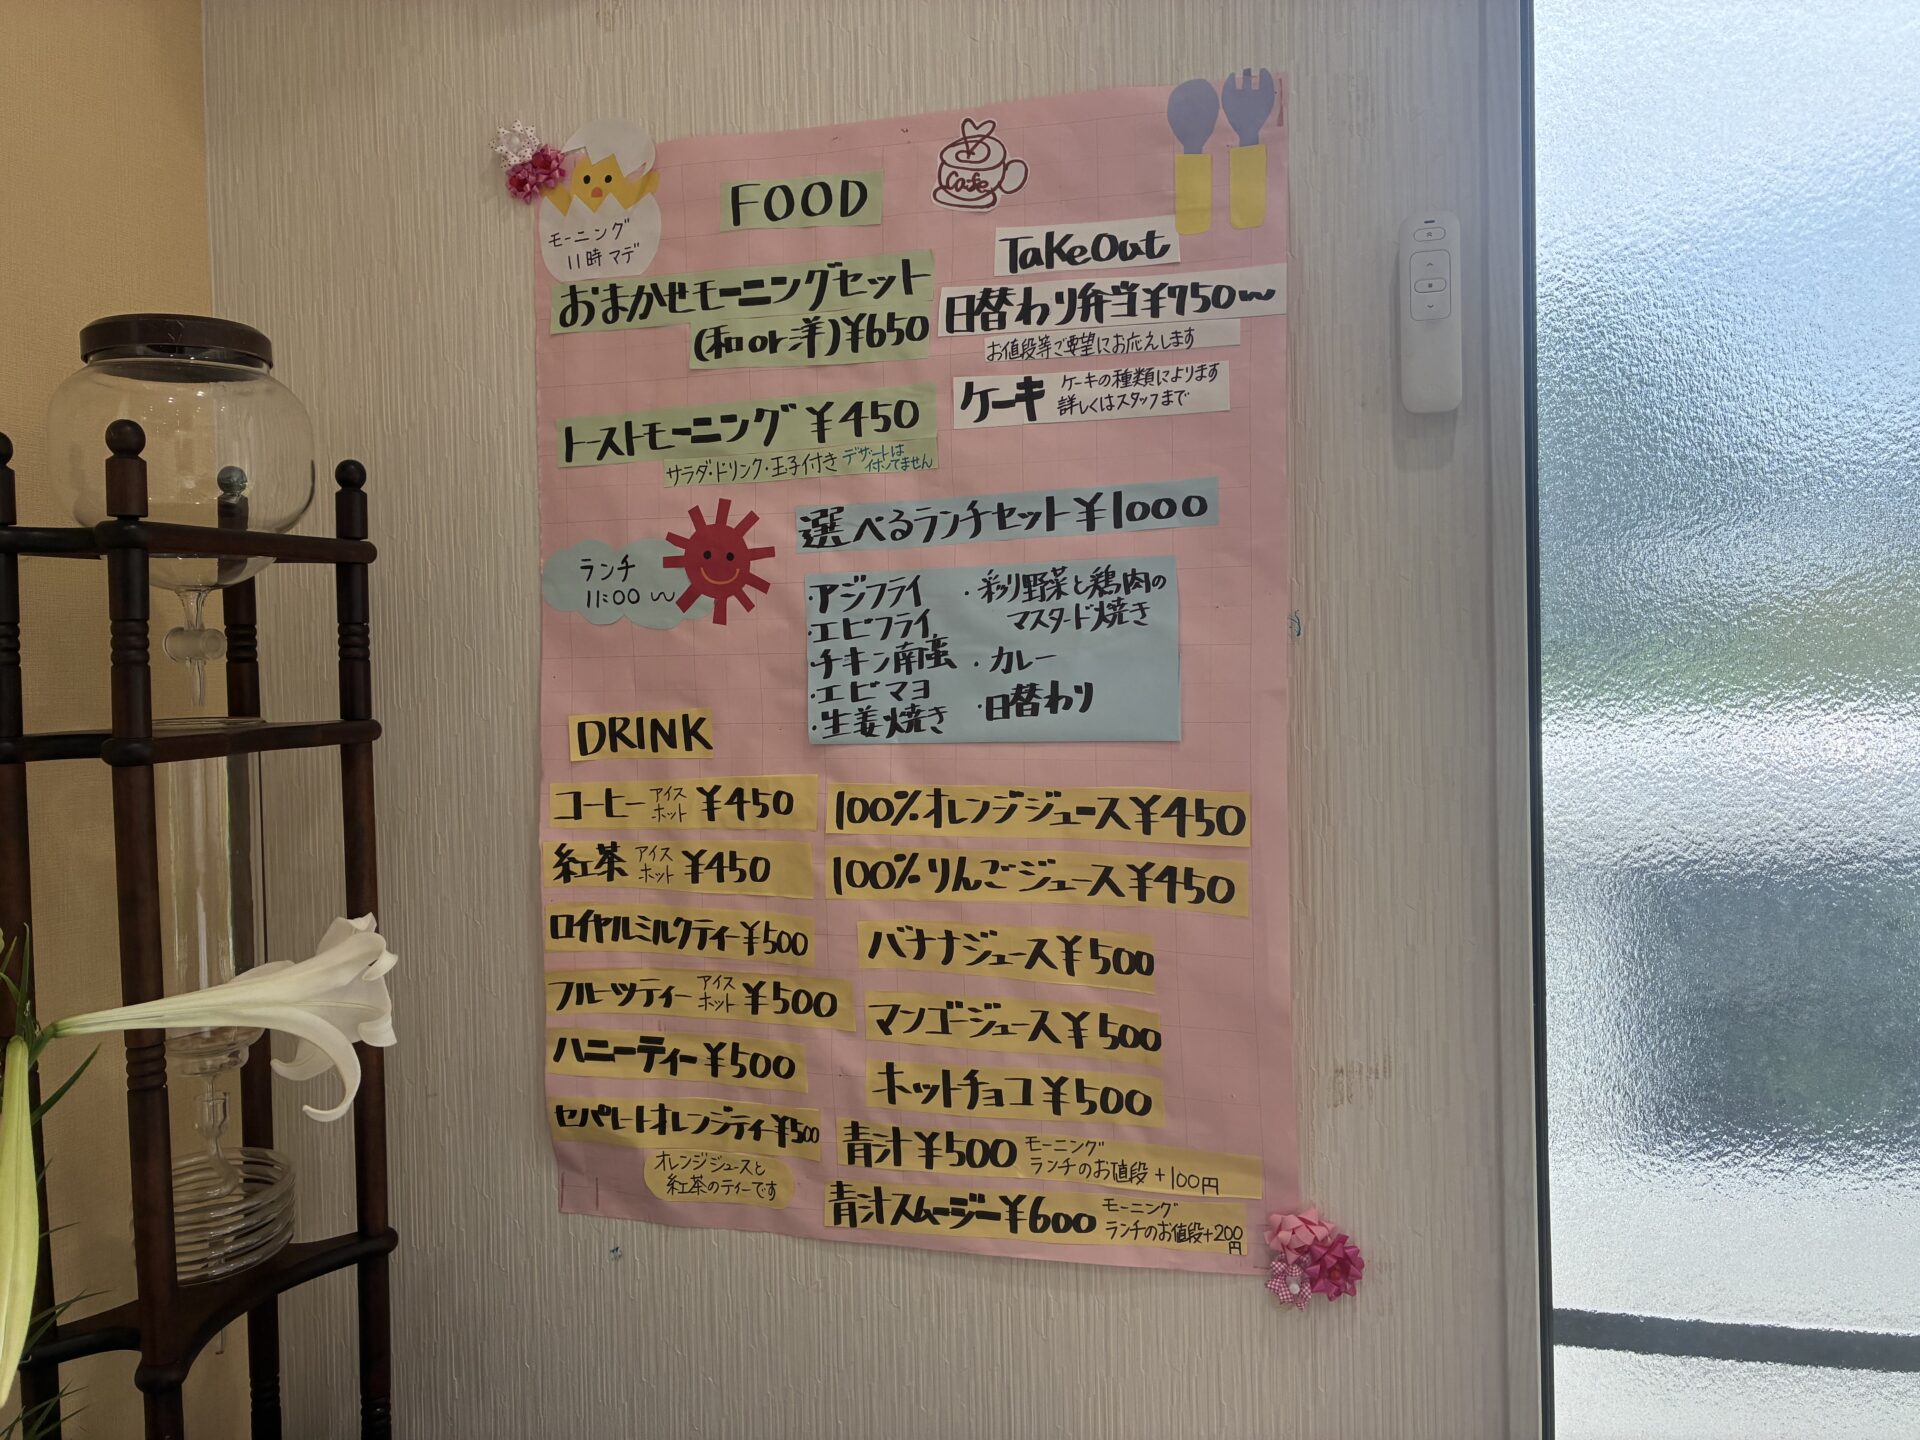 モーニング
11時マデ
FOOD
おまかせモーニングセット
(和or洋)¥650
トーストモーニング¥450
サラダ・ドリンク・玉子付き デザートは
付いてません
Cafe
TakeOut
日替わり弁当¥750〜
お値段等ご要望にお応えします
ケーキ ケーキの種類によります
詳しくはスタッフまで
ランチ
11:00〜
選べるランチセット¥1000
・アジフライ
・エビフライ
・チキン南蛮
・エビマヨ
・生姜焼き
・彩り野菜と鶏肉の
マスタード焼き
・カレー
・日替わり
DRINK
コーヒー アイス
ホット ¥450
紅茶 アイス
ホット ¥450
ロイヤルミルクティー¥500
フルーツティー アイス
ホット ¥500
ハニーティー¥500
セパレートオレンジティー¥500
オレンジジュースと
紅茶のティーです
100%オレンジジュース¥450
100%りんごジュース¥450
バナナジュース¥500
マンゴージュース¥500
ホットチョコ¥500
青汁¥500 モーニング
ランチのお値段+100円
青汁スムージー¥600 モーニング
ランチのお値段+200
円